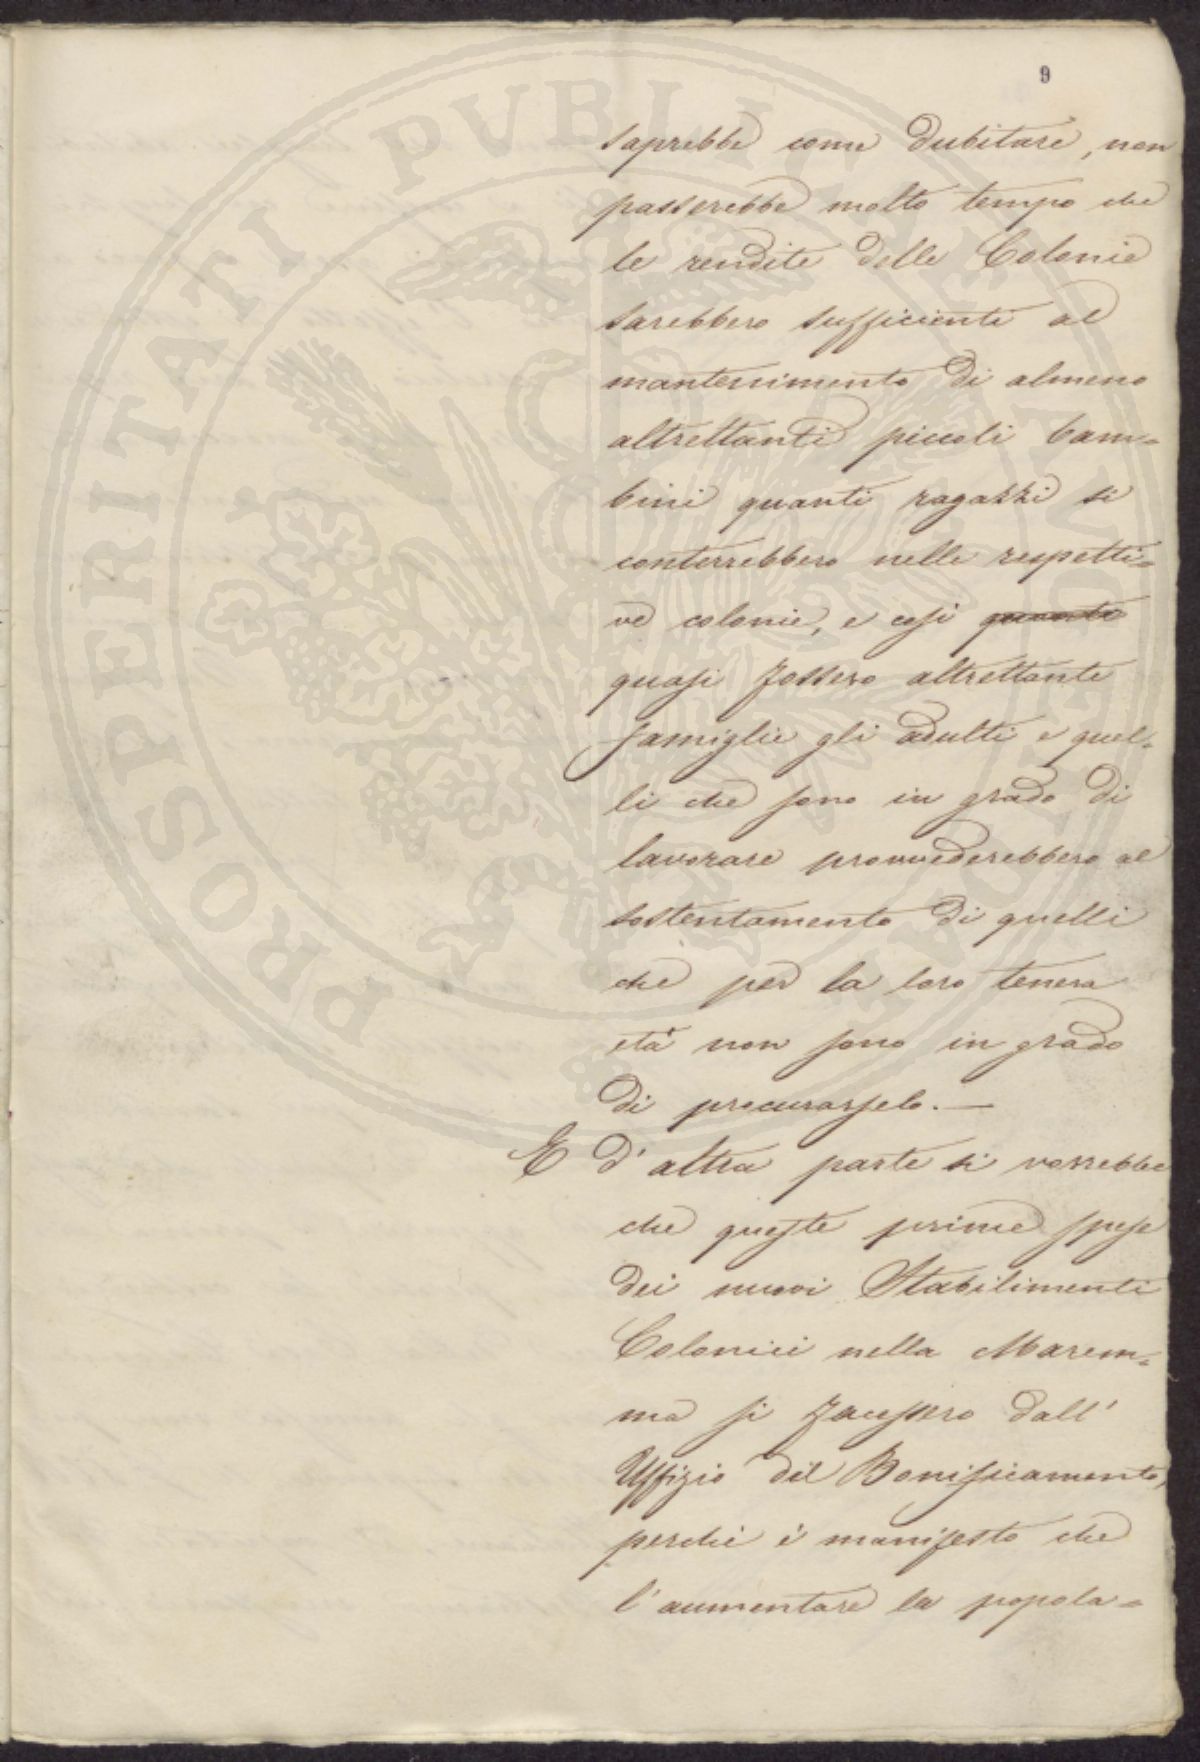 9
saprebbe come dubitare, non
passerebbe molto tempo che
le rendite delle Colonie
sarebbero sufficienti al
mantenimento di almeno
altrettanti piccoli bam=
bini quanti ragazzi si
conterrebbero nelle respetti=
ve colonie, e così quante
quasi fossero altrettante
famiglie gli adulti e quel=
li che sono in grado di
lavorare provvederebbero al
sostentamento di quelli
che per la loro tenera
età non sono in grado
di procurarselo. —
E d'altra parte si vorrebbe
che queste prime spese
dei nuovi Stabilimenti
Colonici nella Marem=
ma si facessero dall'
Uffizio del Bonificamento,
perchè è manifesto che
l'aumentare la popola=
PROSPERITATI PUBLICAE